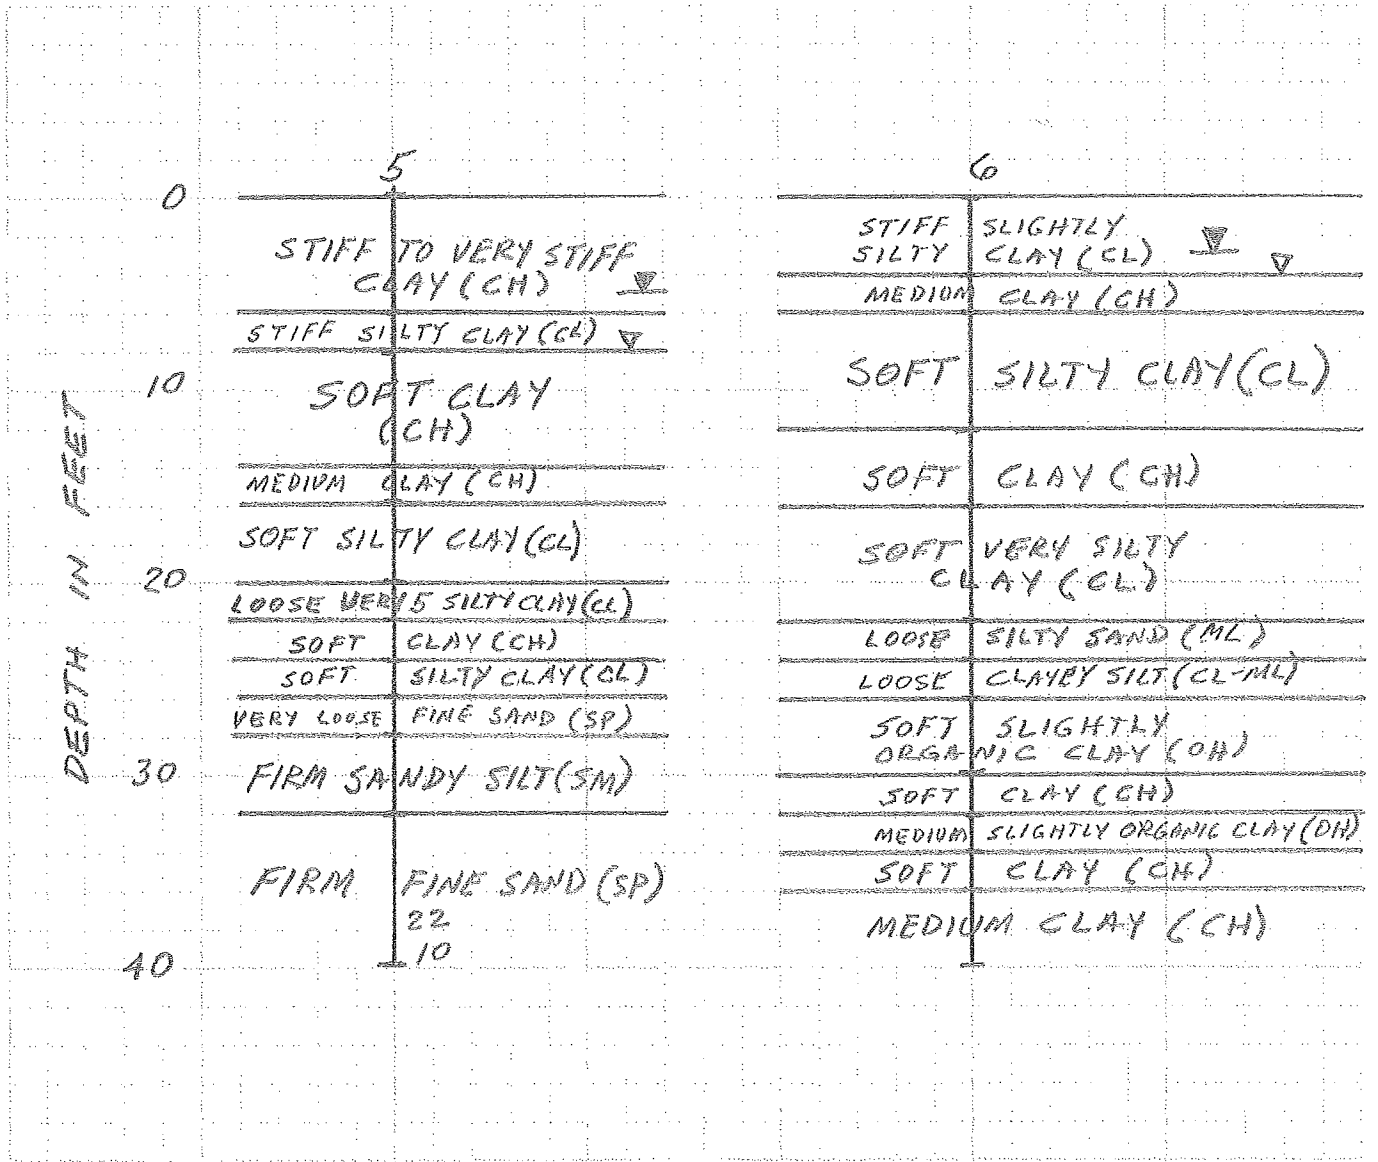 5
6
0
10
20
30
40
DEPTH IN FEET
STIFF TO VERY STIFF
CLAY (CH)
STIFF SILTY CLAY (CL)
SOFT CLAY
(CH)
MEDIUM CLAY (CH)
SOFT SILTY CLAY (CL)
LOOSE VERY 5 SILTY CLAY (CL)
SOFT CLAY (CH)
SOFT SILTY CLAY (CL)
VERY LOOSE FINE SAND (SP)
FIRM SANDY SILT (SM)
FIRM FINE SAND (SP)
22
10
STIFF SLIGHTLY
SILTY CLAY (CL)
MEDIUM CLAY (CH)
SOFT SILTY CLAY (CL)
SOFT CLAY (CH)
SOFT VERY SILTY
CLAY (CL)
LOOSE SILTY SAND (ML)
LOOSE CLAYEY SILT (CL-ML)
SOFT SLIGHTLY
ORGANIC CLAY (OH)
SOFT CLAY (CH)
MEDIUM SLIGHTLY ORGANIC CLAY (OH)
SOFT CLAY (CH)
MEDIUM CLAY (CH)